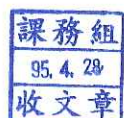 課務組
95. 4. 28
收文章